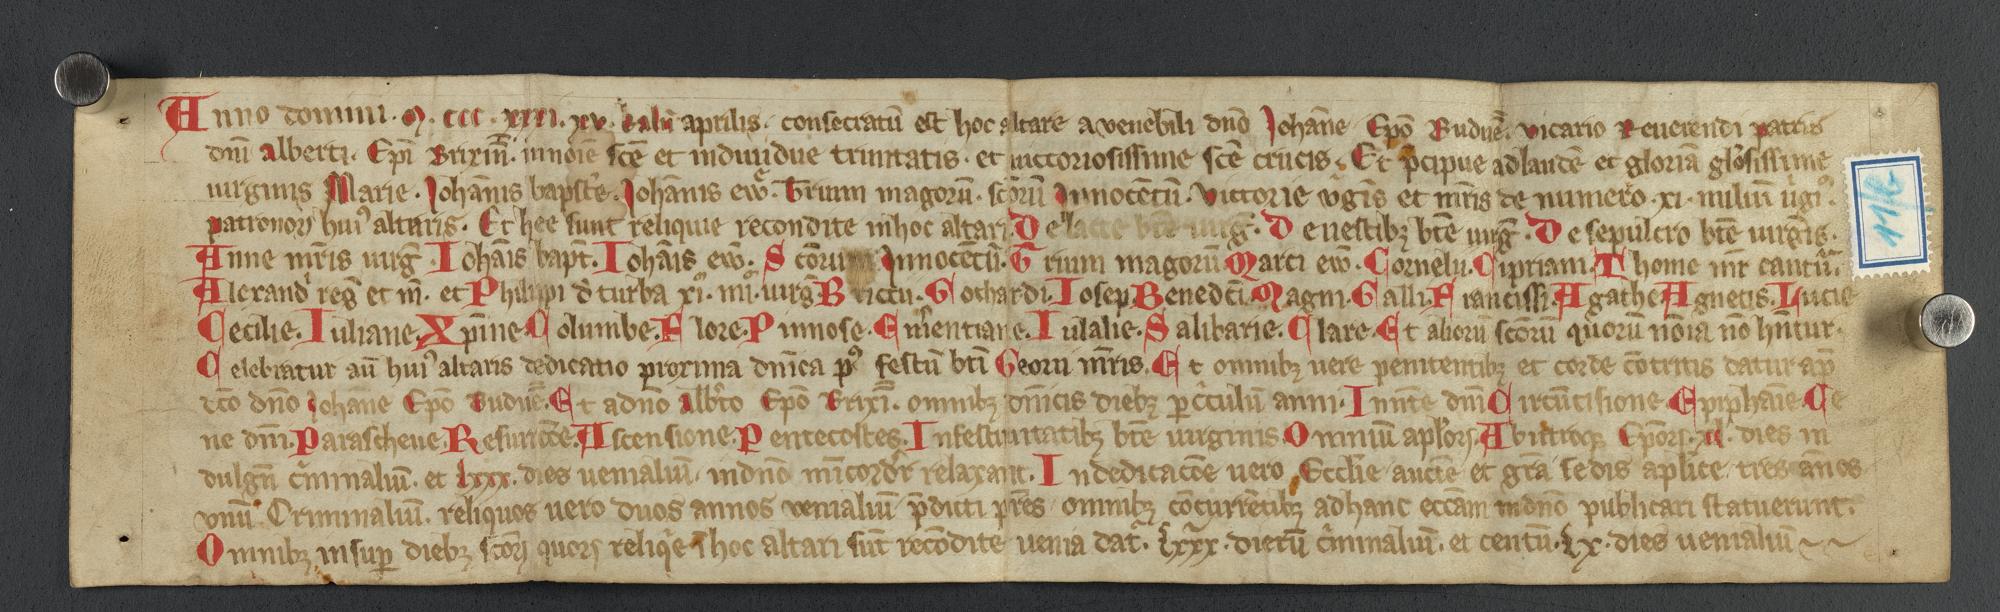 Anno domini · M · ccc · xxiii · xv · kaln̄ aprilis · consecratū est hoc altare a venebili dn̄o Johān̄e Ep̄o Buduēn̄ · vicario Reuerendi patris
dn̄i alberti · Ep̄i Brixin̄ · in noīe sc̄e et indiuidue trinitatis · et uictoriosissime sc̄e crucis · Et p̄cipue ad laudē et gloriā gl̄osissime
uirginis Marie · Johānis bapt̄ste · Johānis ew̄ · Trium magorū · sc̄orū Innocētū · victorie v̄gīs et mr̄is de numero · xi · miliū ūgī ·
patronoꝝ huiꝰ altaris · Et hee sunt reliquie recondite in hoc altari De lacte btē uirḡ · De uestibꝫ btē uirḡ · De sepulcro btē uirgīs ·
Anne mr̄is uirḡ Iohāīs bapt̄ · Iohāīs ew̄ · Sc̄orum Innocētū · Trium magorū Marci ew̄ · Cornelii · Cipriani · Thome mr̄ cantū ·
Alexandr̄ reḡ et m̄ · et Philippi d̄ turba xi · m̄ · uirḡ Briccii · Gothardi · Iosep · Benedc̄i Magni · Galli · Francissi · Agathe Agnetis · Lucie
Cecilie · Iuliane · Xp̄ine · Columbe · Flore · Pinnose · Em̄entiane · Iulalie · Salibarie · Clare · Et aliorū sc̄orū quorū nōīa nō hn̄tur ·
Celebratur aū huiꝰ altaris dedicatio proxima dn̄ica pꝰ festū btī Georii mr̄is · Et omnibꝫ uere penitentibꝫ et corde cōtritis datur a p̄
dc̄o dn̄o Johāne Ep̄o Buduēn̄ · Et a dn̄o Albr̄to Ep̄o Brixīn̄ · omnibꝫ dn̄icis diebꝫ p c̄culū anni · In nr̄te dn̄i Circūcisione · Epyphāīe · Ce
ne dn̄i · Parasceue · Resurrcc̄e · Ascensione · Pentecostes · In festiuitatibꝫ btē uirginis · Omniū apl̄oꝝ · Ab utroqꝫ Ep̄oꝝ · xl · dies in
dulgn̄ c̄minaliū · et lxxx · dies uenialiū · in dn̄o mīcordr̄ relaxant · In dedicacc̄e uero Eccl̄ie aucte et grā sedis apl̄ice tres ānos
vnū Criminaliū · reliquos uero duos annos venialiū p̄dicti pr̄es omnibꝫ cōcurrētibꝫ ad hanc ecc̄am in dn̄o publicari statuerunt ·
Omnibꝫ insup diebꝫ sc̄oꝝ quoꝝ reliqīe ī hoc altari sūt recōdite uenia dat̄ · lxxx · dierū c̄minaliū · et centū · lx · dies uenialiū